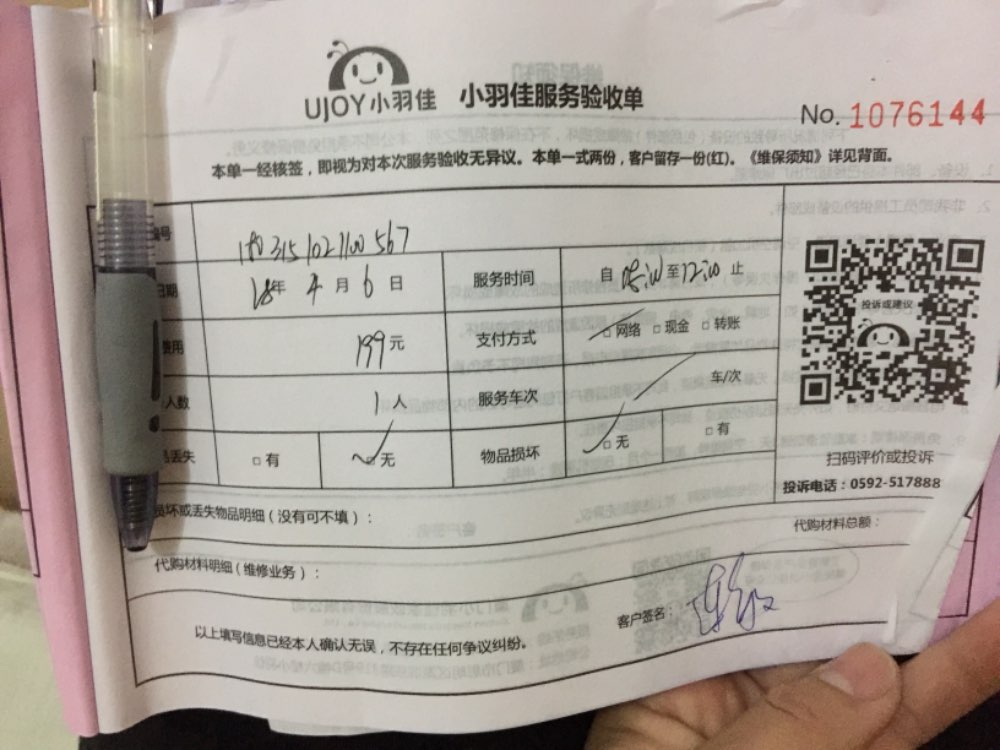 UJOY小羽佳 小羽佳服务验收单
No. 1076144
本单一经核签，即视为对本次服务验收无异议。本单一式两份，客户留存一份(红)。《维保须知》详见背面。
编号 1803151021100567
日期 18年 4月 6日 服务时间 自 08:00 至 12:00 止
费用 199元 支付方式 □网络 □现金 □转账
人数 1人 服务车次 车/次
丢失 □有 □无 物品损坏 □无 □有
投诉或建议
扫码评价或投诉
投诉电话：0592-517888
损坏或丢失物品明细（没有可不填）：
代购材料总额：
代购材料明细（维修业务）：
客户签名：
以上填写信息已经本人确认无误，不存在任何争议纠纷。